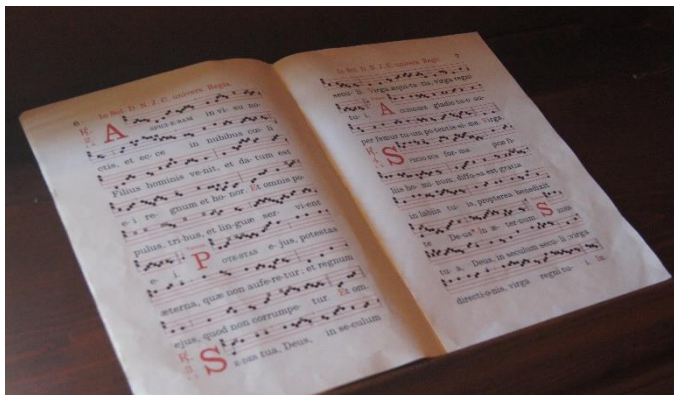 6
In fest. D. N. J. C. universa Regis
A SPICI-E-BAM in vi- su no-
ctis, et ec- ce in nubibus cœ- li
Filius hominis ve-nit, et da- tum est
e- i re- gnum et ho- nor. Et omnis po-
pulus, tri-bus, et lin-guæ ser- vi-ent
e- i. P OTE-STAS e- jus, potestas
æterna, quæ non aufe-re-tur: et regnum
ejus, quod non corrumpe- tur. Et om.
S E-DES tua, Deus, in se-culum
7
In fest. D. N. J. C. universa Regis
secu- li: virga æqui-ta-tis, virga regni
tu- i. A
per femur tu-um po-tentis-si- me. virga.
S PECI-O-SUS for- ma præ fi-
liis ho- mi-num, diffu-sa est gratia
in labiis tu- is, propterea benedixit
te Deus in æ- ter-num S EDES
tu- a, Deus, in seculum secu-li: virga
directi-o-nis, virga regni tu- i. in.